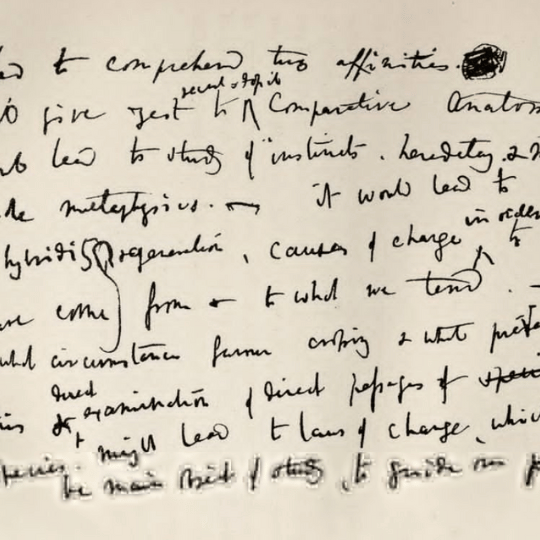 to comprehend true affinities.
give zest to recent & fossil Comparative Anatomy
lead to study of instincts, heredity, &
metaphysics. — it would lead to
hybridity regeneration, causes of change in order to
come from & to what we tend. —
circumstances favour crossing & what prevents
this direct examination of direct passages of species
might lead to laws of change, which
be main object of study, to guide our